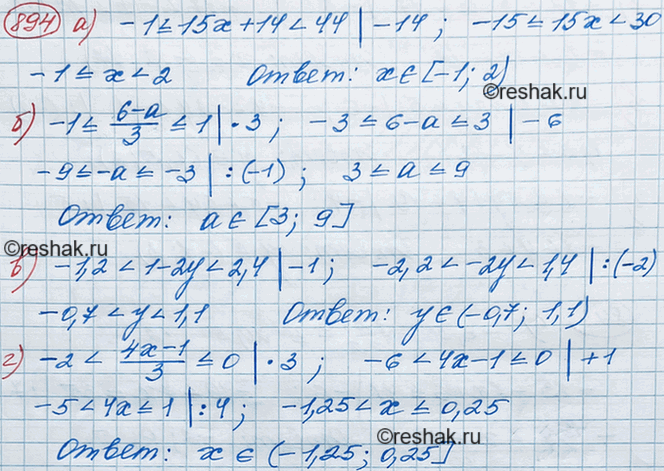 894 а) -1 ≤ 15x+14 < 44 | -14 ; -15 ≤ 15x < 30
-1 ≤ x < 2 Ответ: x ∈ [-1; 2)
©reshak.ru
б) -1 ≤ (6-a)/3 ≤ 1 | · 3 ; -3 ≤ 6-a ≤ 3 | -6
-9 ≤ -a ≤ -3 | : (-1) ; 3 ≤ a ≤ 9
Ответ: a ∈ [3; 9]
©reshak.ru
в) -1,2 < 1-2y < 2,4 | -1 ; -2,2 < -2y < 1,4 | : (-2)
-0,7 < y < 1,1 Ответ: y ∈ (-0,7; 1,1)
г) -2 < (4x-1)/3 ≤ 0 | · 3 ; -6 < 4x-1 ≤ 0 | +1
-5 < 4x ≤ 1 | : 4 ; -1,25 < x ≤ 0,25
Ответ: x ∈ (-1,25; 0,25]
©reshak.ru